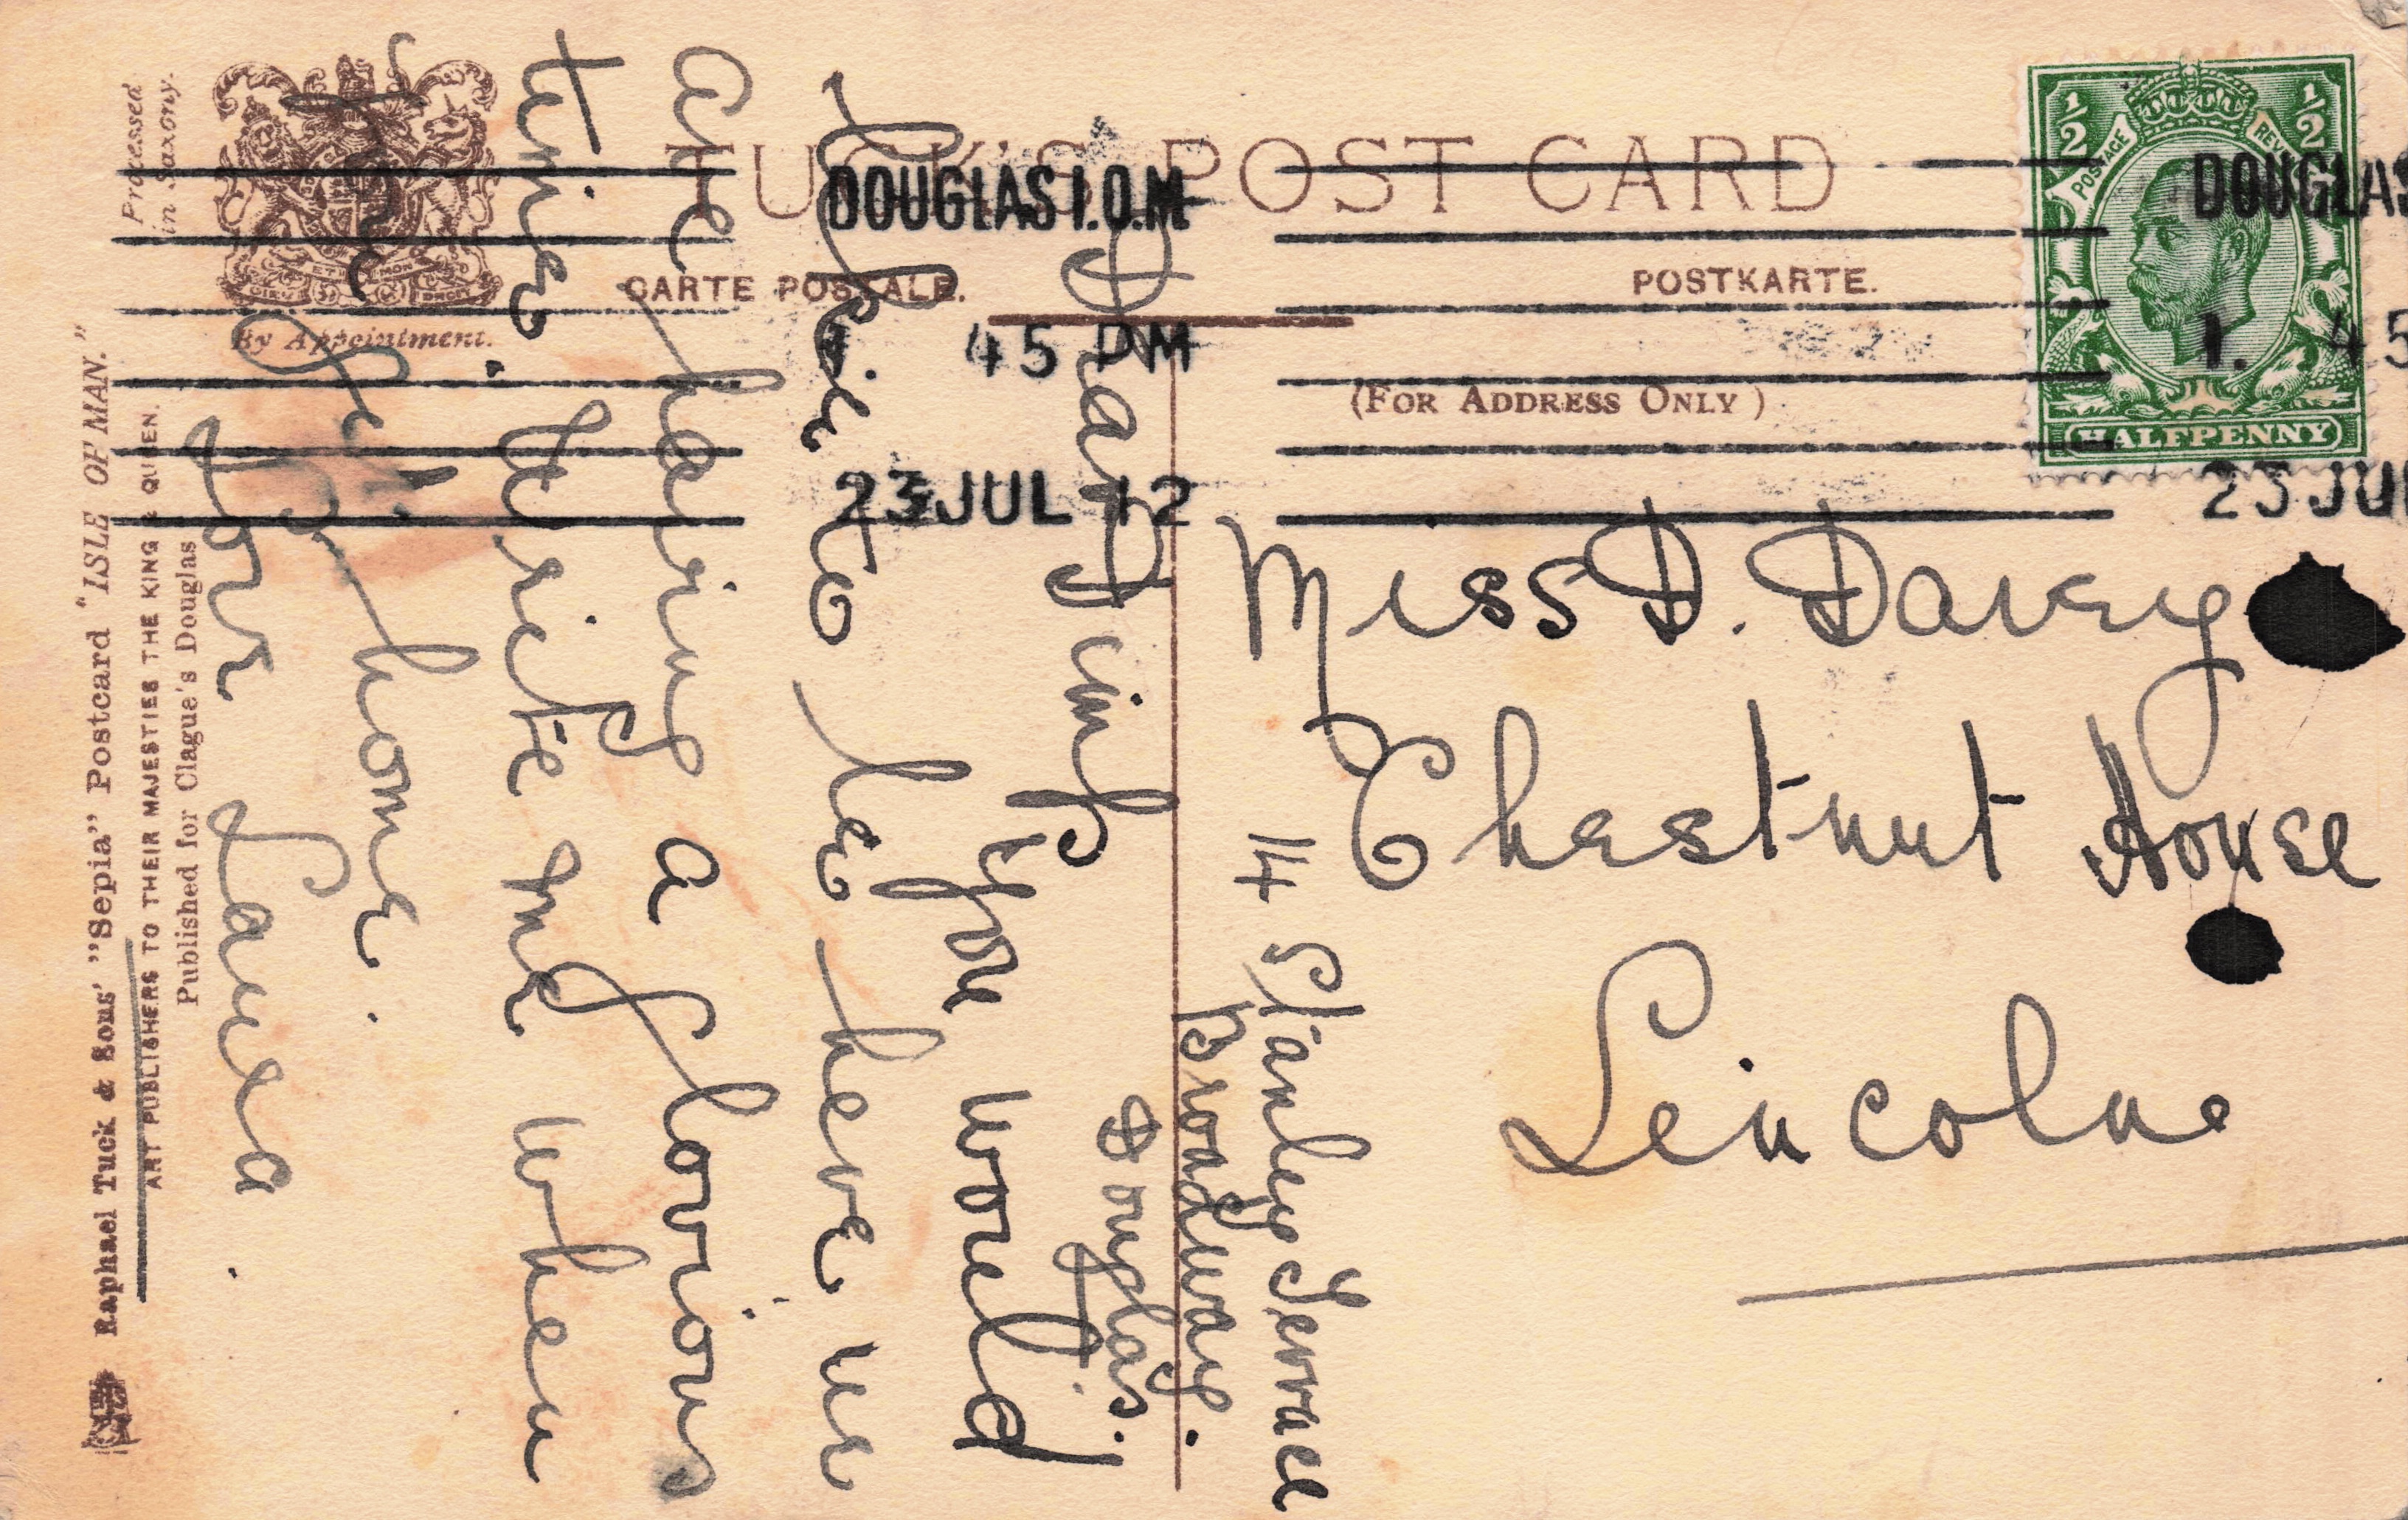 TUCK'S POST CARD
CARTE POSTALE.
POSTKARTE.
(FOR ADDRESS ONLY)
By Appointment.
Processed
in Saxony.
DOUGLAS I.O.M
45 PM
23 JUL 12
DOUGLAS
1. 45
23 JUL
½ ½
POSTAGE
HALFPENNY
Miss D. Davey
Chestnut House
Lincoln
14 Stanley Terrace
Broadway.
Douglas.
Darling
you would
like to be here we
are having a glorious
time. Write me when
you get home.
Love Laura.
Raphael Tuck & Sons' "Sepia" Postcard "ISLE OF MAN."
ART PUBLISHERS TO THEIR MAJESTIES THE KING & QUEEN.
Published for Clague's Douglas